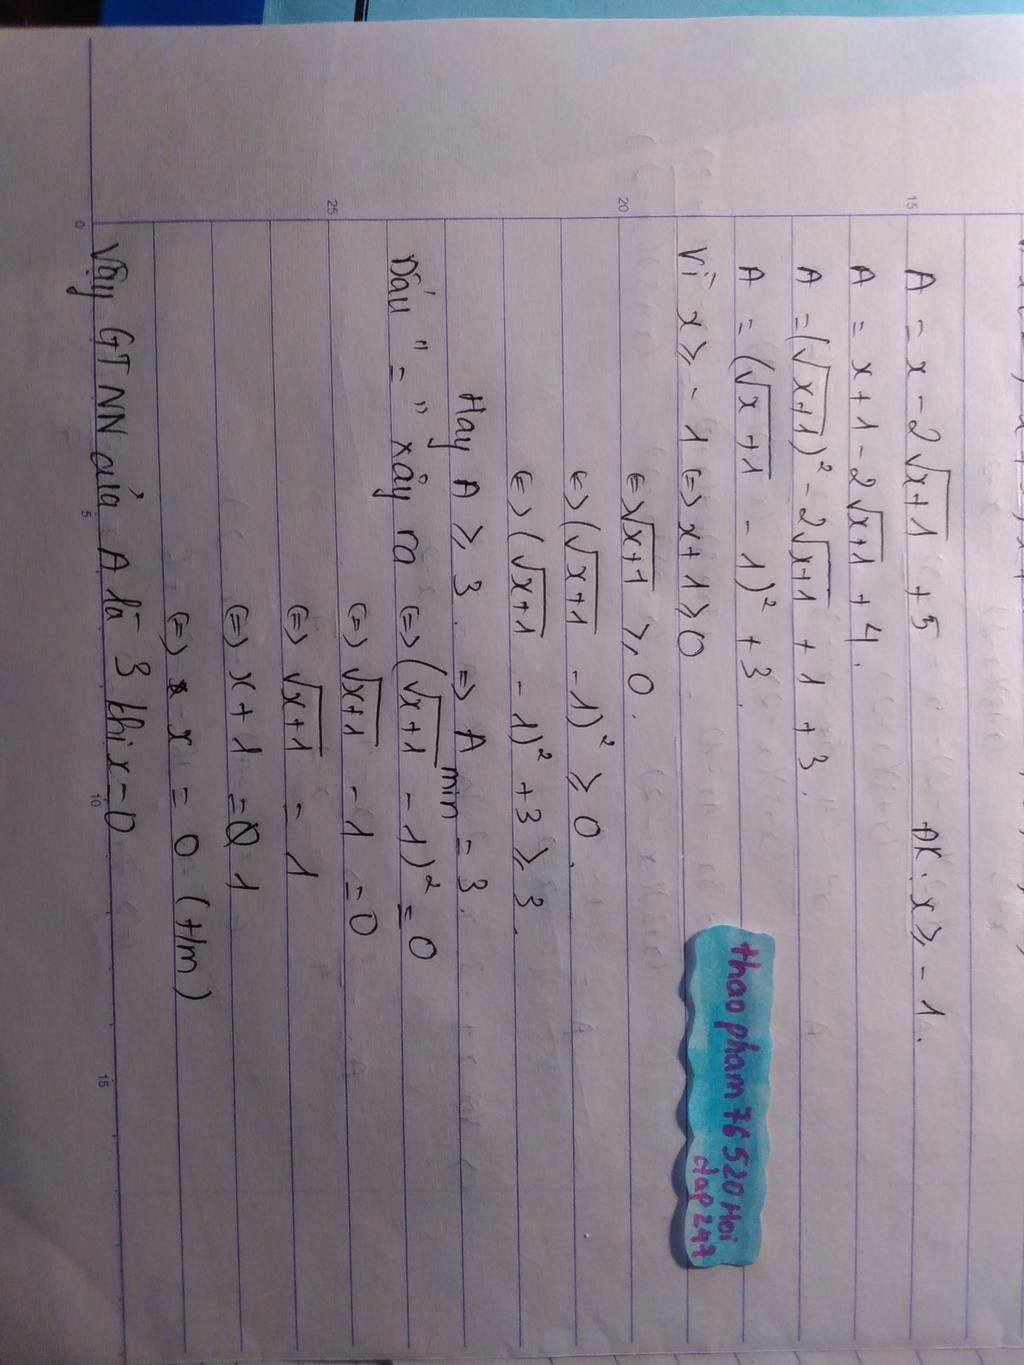 A = x - 2√(x+1) + 5   ĐK: x ≥ - 1.
A = x + 1 - 2√(x+1) + 4.
A = (√(x+1))² - 2√(x+1) + 1 + 3.
A = (√(x+1) - 1)² + 3.
Vì x ≥ - 1 (=) x + 1 ≥ 0
(=) √(x+1) ≥ 0.
(=) (√(x+1) - 1)² ≥ 0.
(=) (√(x+1) - 1)² + 3 ≥ 3.
Hay A ≥ 3. => A min = 3.
Dấu "=" xảy ra (=) (√(x+1) - 1)² = 0
(=) √(x+1) - 1 = 0
(=) √(x+1) = 1
(=) x + 1 = 1
(=) x = 0 (t/m)
Vậy GTNN của A là 3 khi x = 0
thao pham 76520 Hoi
dap 247
15
20
25
0
5
10
15